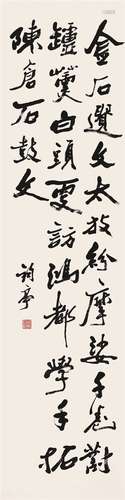 金石遺文太放紛摩挲千卷對
罏薰白頭更訪鴻都學手拓
陳倉石鼓文